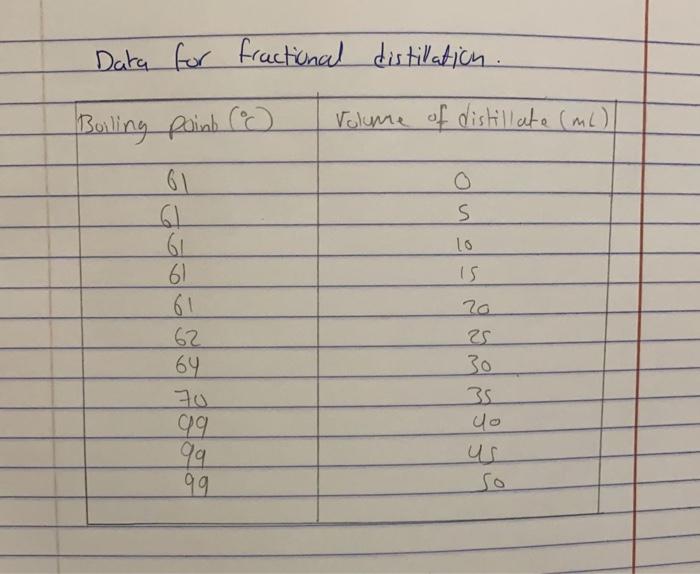 Data for fractional distillation.
Boiling point (°C) Volume of distillate (mL)
61 0
61 5
61 10
61 15
61 20
62 25
64 30
70 35
99 40
99 45
99 50